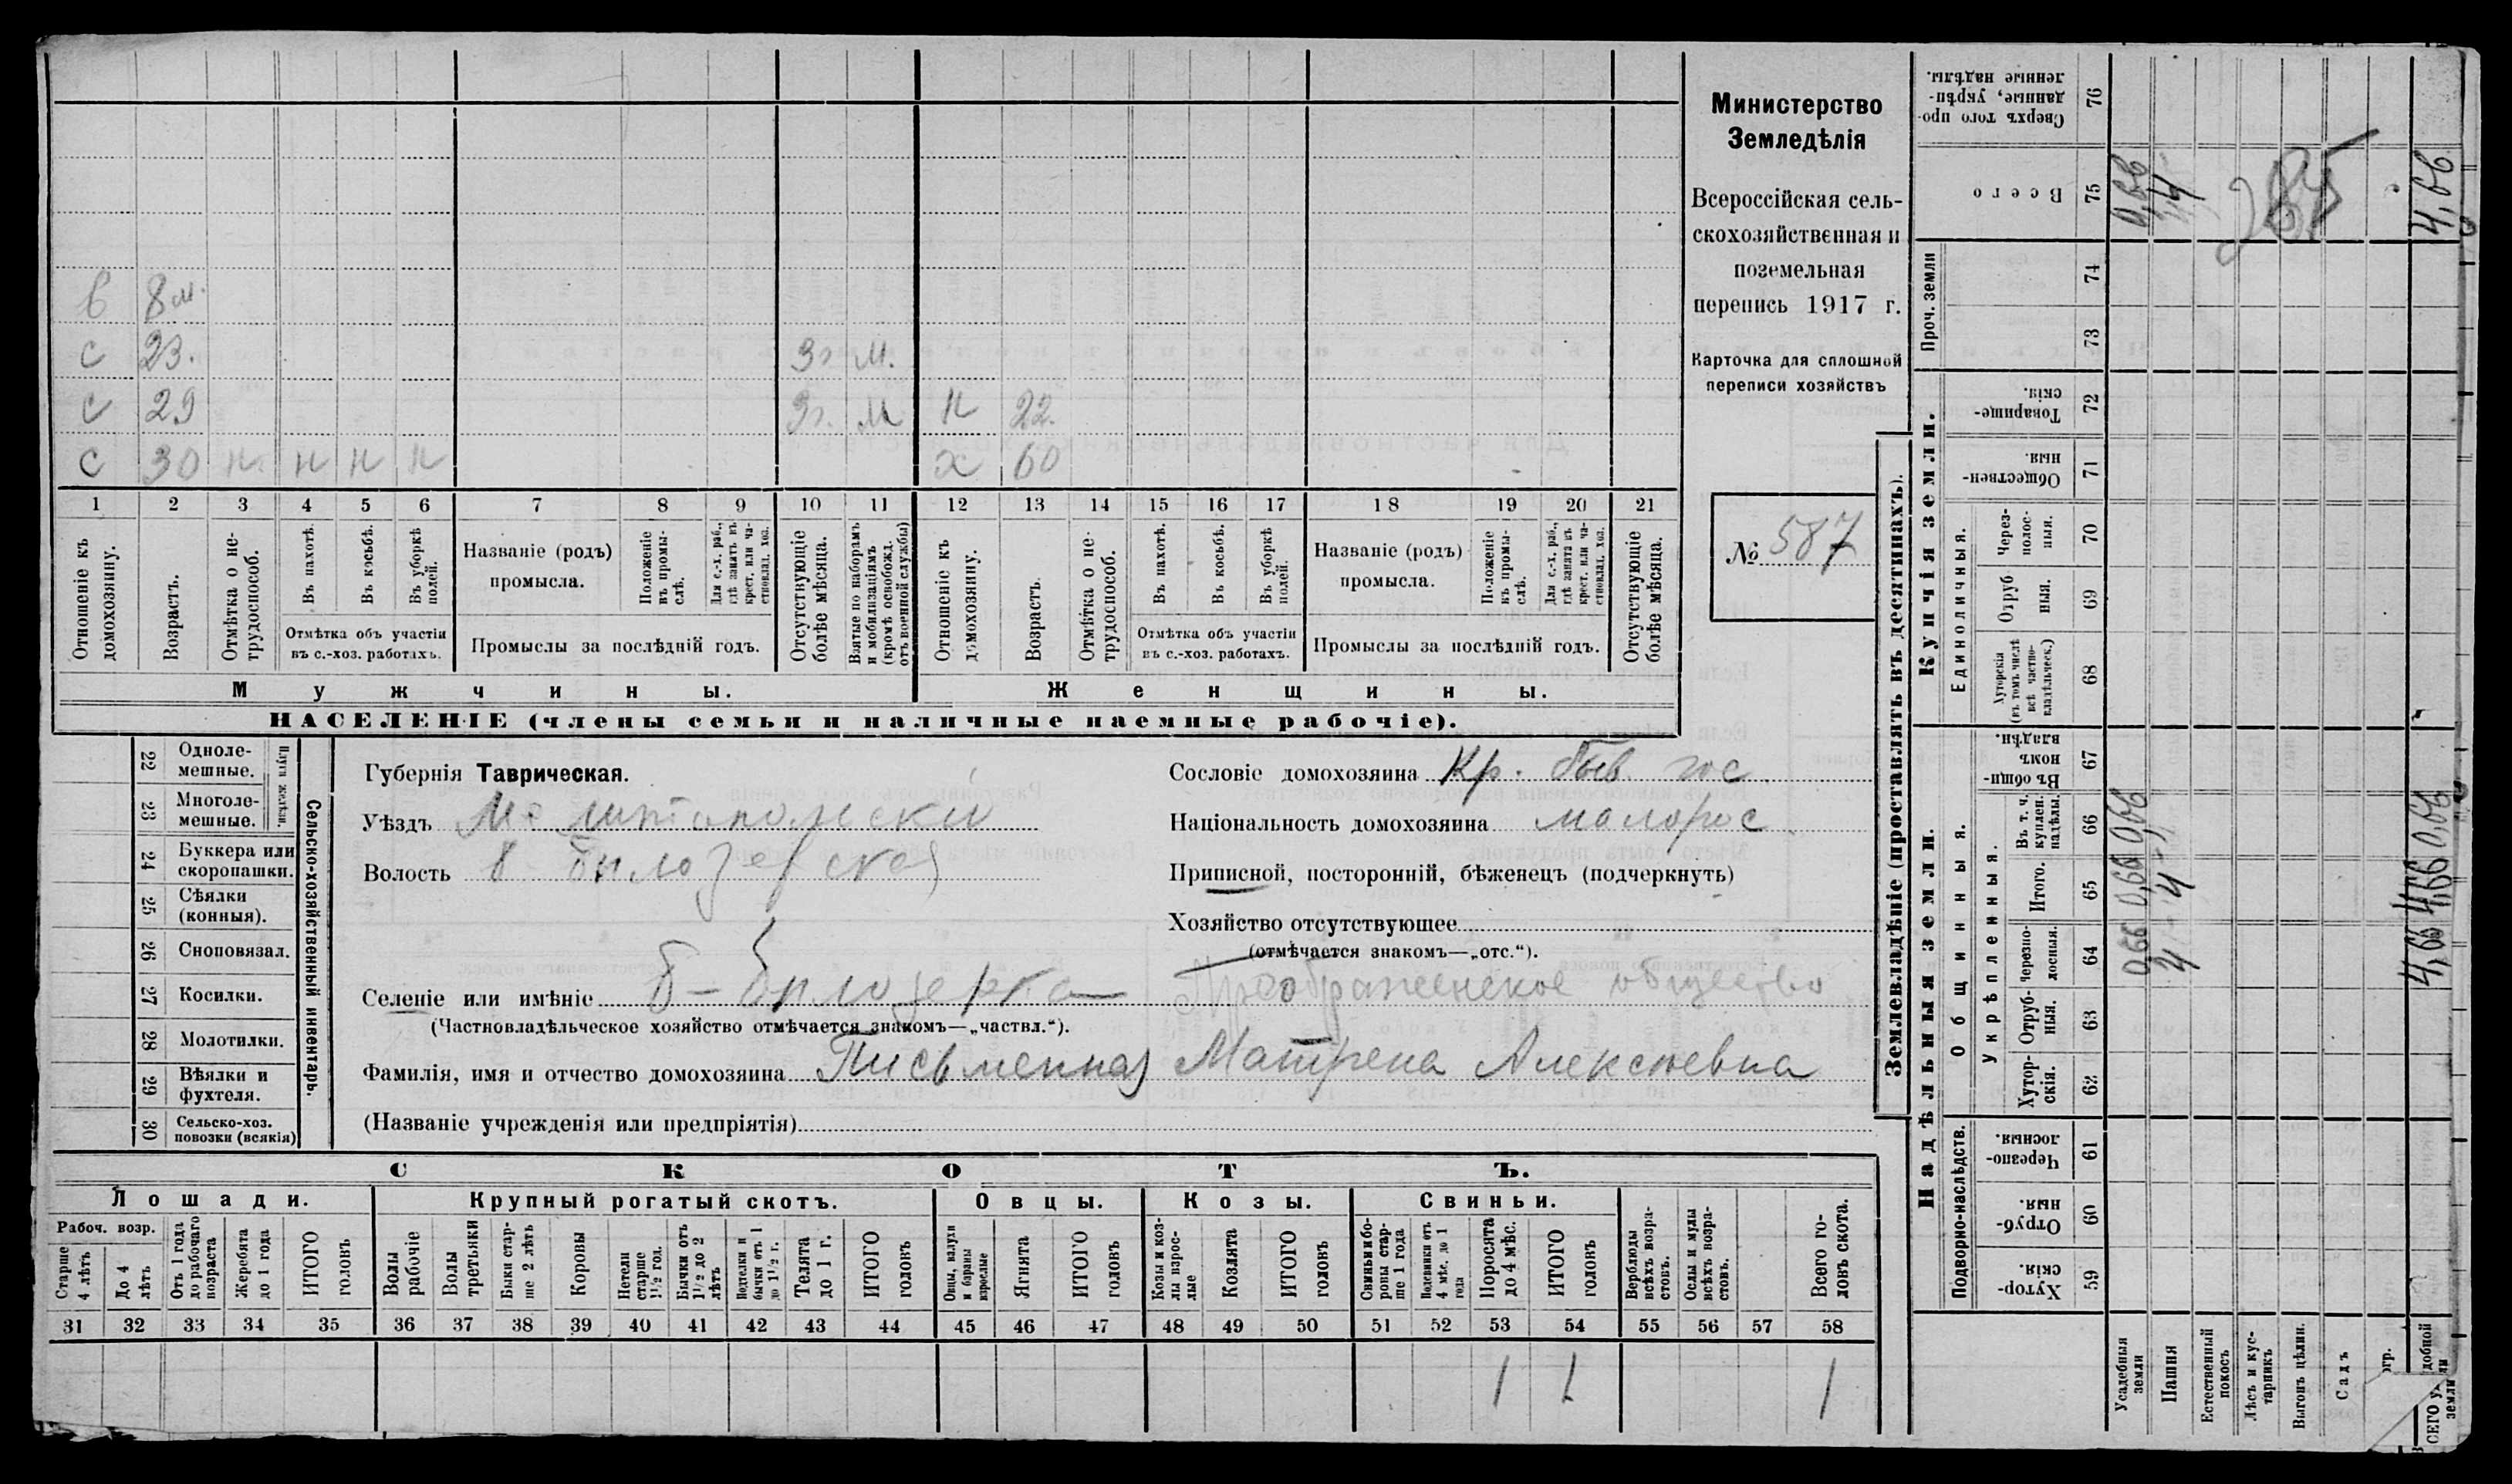 в 8 м.
с 23. 3 г. м.
с 29 3 г. м н 22.
с 30 н. н н н х 60
1 2 3 4 5 6 7 8 9 10 11 12 13 14 15 16 17 18 19 20 21
Отношеніе къ домохозяину.
Возрастъ.
Отмѣтка о не-
трудоспособ.
Въ пахотѣ.
Въ косьбѣ.
Въ уборкѣ полей.
Отмѣтка объ участіи
въ с.-хоз. работахъ.
Названіе (родъ)
промысла.
Положеніе
въ промы-
слѣ.
Для с.-х. раб.,
гдѣ занятъ въ
крест. или ча-
стновлад. хоз.
Промыслы за послѣдній годъ.
Отсутствующіе
болѣе мѣсяца.
Взятые по наборамъ
и мобилизаціямъ
(кромѣ освобожд.
отъ военной службы)
Отношеніе къ
домохозяину.
Возрастъ.
Отмѣтка о не-
трудоспособ.
Въ пахотѣ.
Въ косьбѣ.
Въ уборкѣ
полей.
Отмѣтка объ участіи
въ с.-хоз. работахъ.
Названіе (родъ)
промысла.
Положеніе
въ промы-
слѣ.
Для с.-х. раб.,
гдѣ занята въ
крест. или ча-
стновлад. хоз.
Промыслы за послѣдній годъ.
Отсутствующіе
болѣе мѣсяца.
Мужчины.
Женщины.
НАСЕЛЕНІЕ (члены семьи и наличные наемные рабочіе).
Министерство
Земледѣлія
Всероссійская сель-
скохозяйственная и
поземельная
перепись 1917 г.
Карточка для сплошной
переписи хозяйствъ
№ 587
22 Одноле-
мешные.
23 Многоле-
мешные.
Плуги желѣзн.
24 Буккера или
скоропашки.
25 Сѣялки
(конныя).
26 Сноповязал.
27 Косилки.
28 Молотилки.
29 Вѣялки и
фухтеля.
30 Сельско-хоз.
повозки (всякія)
Сельско-хозяйственный инвентарь.
Губернія Таврическая.
Уѣздъ Мелитопольскій
Волость Б-Билозерская
Селеніе или имѣніе Б-Билозерка Преображенское общество
(Частновладѣльческое хозяйство отмѣчается знакомъ—„частвл.“).
Фамилія, имя и отчество домохозяина Письменная Матрена Алексѣевна
(Названіе учрежденія или предпріятія)
Сословіе домохозяина Кр. быв. гос.
Національность домохозяина малорос.
Приписной, посторонній, бѣженецъ (подчеркнуть)
Хозяйство отсутствующее
(отмѣчается знакомъ—„отс.“).
СКОТЪ.
Лошади.
Крупный рогатый скотъ.
Овцы.
Козы.
Свиньи.
Рабоч. возр.
Старше
4 лѣтъ
До 4
лѣтъ
Отъ 1 года
до рабочаго
возраста
Жеребята
до 1 года
ИТОГО
головъ
Волы
рабочіе
Волы
третьяки
Быки стар-
ше 2 лѣтъ
Коровы
Нетели
старше
1½ год.
Бычки отъ
1½ до 2
лѣтъ
Подтелки и
бычки отъ 1
до 1½ г.
Телята
до 1 г.
ИТОГО
головъ
Овцы, валухи
и бараны
взрослые
Ягнята
ИТОГО
головъ
Козы и коз-
лы взрос-
лые
Козлята
ИТОГО
головъ
Свиньи и бо-
ровы стар-
ше 1 года
Подсвинки отъ
4 мѣс. до 1
года
Поросята
до 4 мѣс.
ИТОГО
головъ
Верблюды
всѣхъ возра-
стовъ.
Ослы и мулы
всѣхъ возра-
стовъ.
Всего го-
ловъ скота.
31 32 33 34 35 36 37 38 39 40 41 42 43 44 45 46 47 48 49 50 51 52 53 54 55 56 57 58
1 1 1
Землевладѣніе (проставлять въ десятинахъ).
Надѣльныя земли.
Купчія земли.
Проч. земли
Подворно-наслѣдств.
Общинныя.
Укрѣпленныя.
Единоличныя.
Сверхъ того про-
данные, укрѣп-
ленные надѣлы. 76
Всего 75
74
73
Товарище-
скія. 72
Обществен-
ныя. 71
Через-
полос-
ныя. 70
Отруб
ныя. 69
Хуторскія
(въ томъ числѣ
всѣ частно-
владѣльческ.) 68
Въ общи-
номъ
владѣн. 67
Въ т. ч.
куплен.
надѣлы. 66
Итого. 65
Черезпо-
лосныя. 64
Отруб-
ныя. 63
Хутор-
скія. 62
Черезпо-
лосныя. 61
Отруб-
ныя. 60
Хутор-
скія. 59
Усадебныя
земли
0,66 0,66 0,66 0,66
Пашня
4 4 4
Естественный
покосъ
Лѣсъ и кус-
тарникъ
Выгонъ цѣлин.
Садъ
огр.
СЕГО удобной
земли
4,66 4,66 0,66 4,66